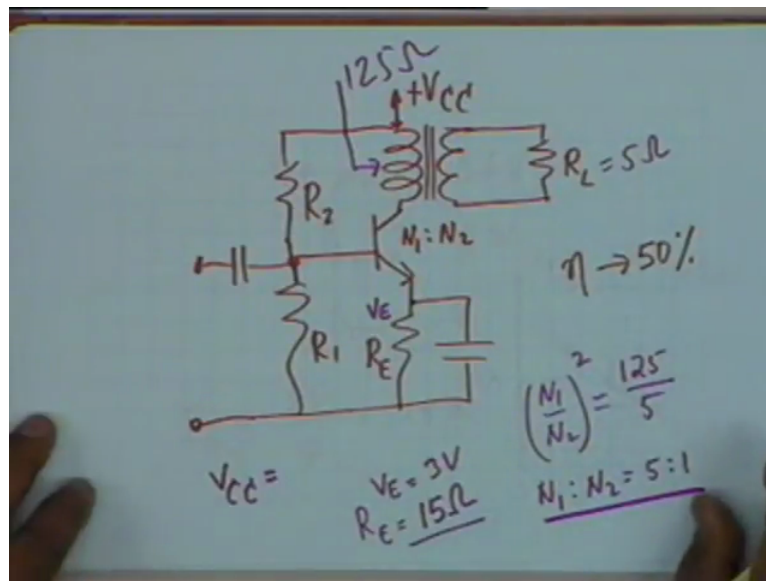 125Ω
+VCC
R2
RL = 5Ω
N1 : N2
η → 50%
VE
R1
RE
(N1/N2)² = 125/5
VCC =
VE = 3V
RE = 15Ω
N1 : N2 = 5 : 1